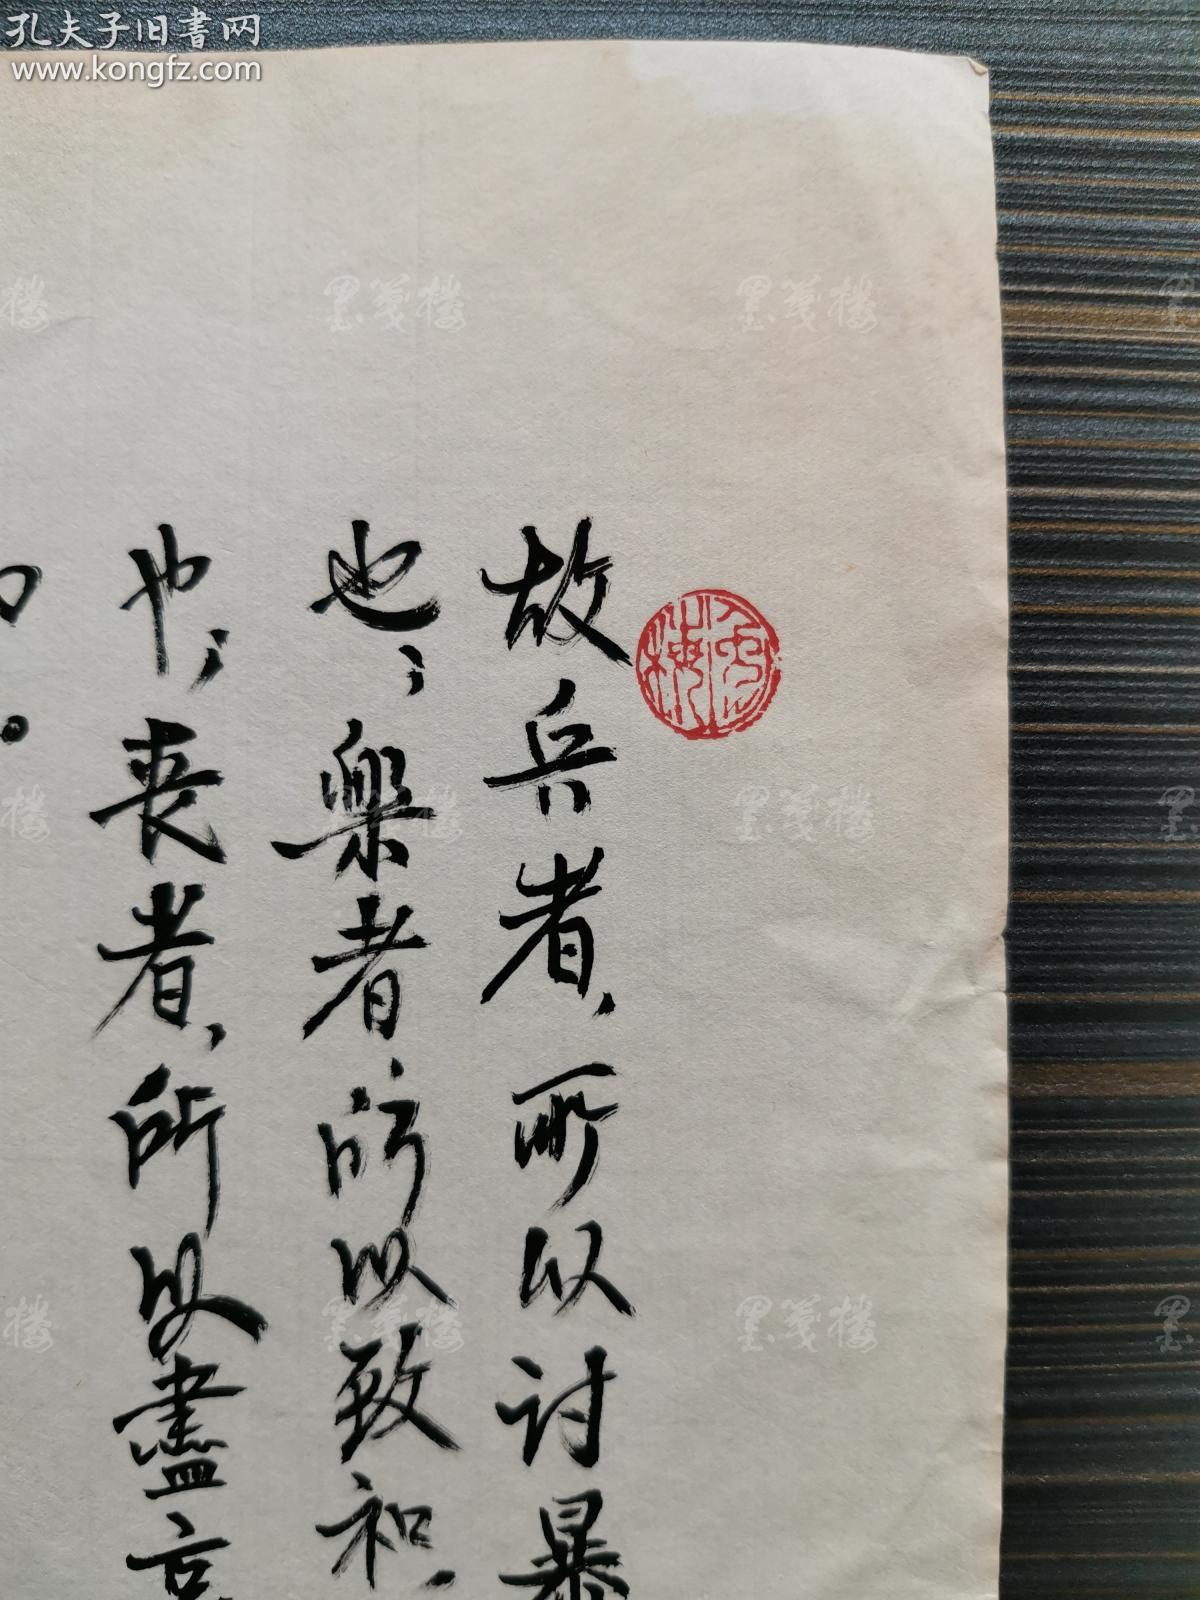 孔夫子旧書网
www.kongfz.com
墨笺楼
故兵者，所以討暴
也；樂者，所以致和，
也；喪者，所以盡哀